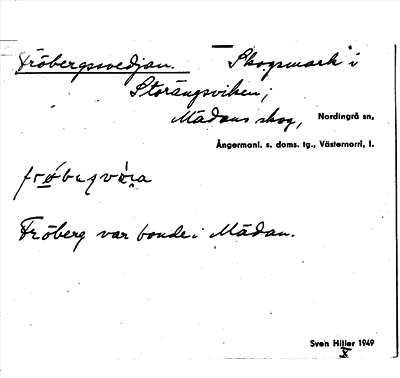 Fröbergssvedjan. Skogsmark i
Storängsviken;
Mädans skog, Nordingrå sn,
Ångermanl. s. doms. tg., Västernorrl, l.
Fröberg var bonde i Mädan.
Sven Hiller 1949
X